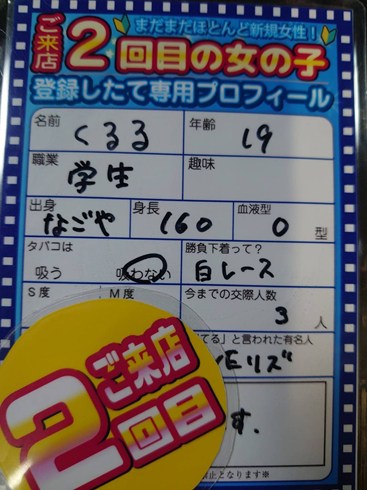 まだまだほとんど新規女性！
ご来店
2回目の女の子
登録したて専用プロフィール
名前 くるる 年齢 19
職業 学生 趣味
出身 なごや 身長 160 血液型 O 型
タバコは 勝負下着って？
吸う 吸わない 白レース
S度 M度 今までの交際人数
3人
てる」と言われた有名人
モリズ
す.
ご来店
2回目
止となります※